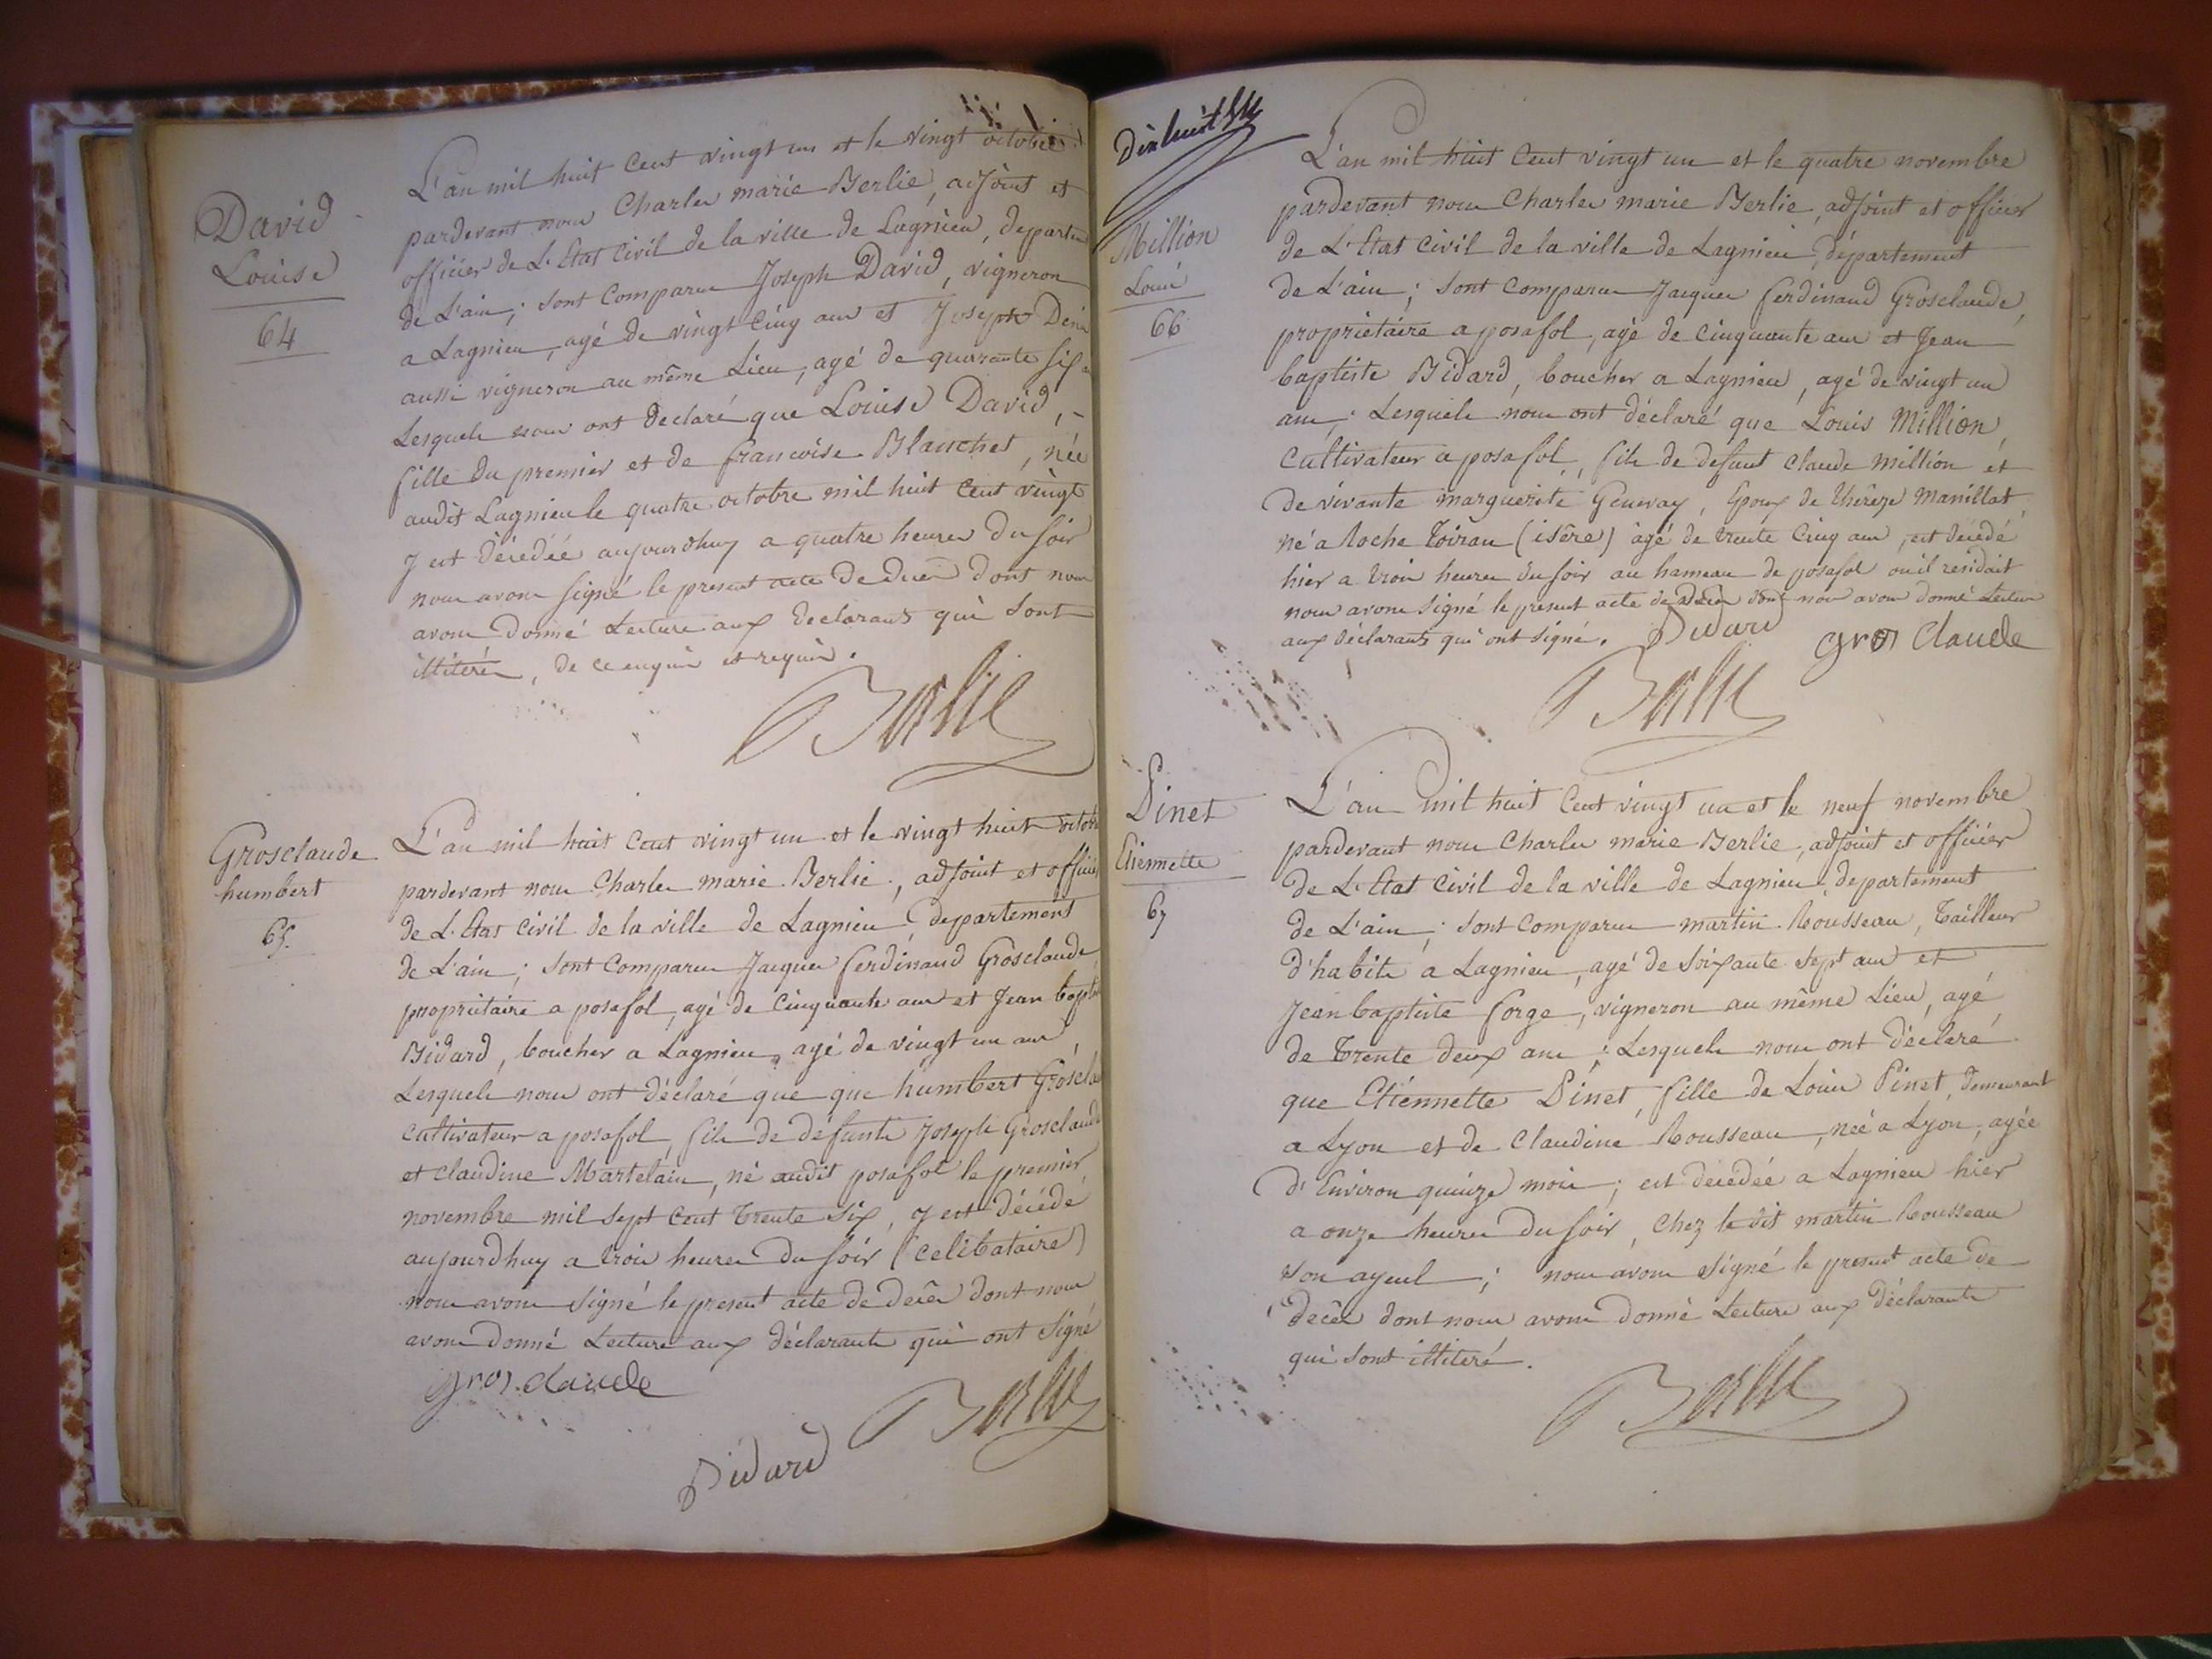 David
Louise
64
L'an mil huit Cent vingt un et le vingt octobre
pardevant nous Charles marie Berlie, adjoint et
officier de L'Etat Civil de la ville de Lagnieu, departem
de L'ain; sont Comparus Joseph David, vigneron
a Lagnieu, agé de vingt Cinq ans et Joseph
aussi vigneron au même Lieu, agé de quarante six
Lesquels nous ont declaré que Louise David,
fille du premier et de francoise Blanchet, née
audit Lagnieu le quatre octobre mil huit Cent vingt
y est décedée aujourdhuy a quatre heures du soir
nous avons signé le present acte de deces dont nous
avons donné Lecture aux declarants qui sont
illiterés, de ce enquis et requis.
Berlie
Grosclaude
humbert
65.
L'an mil huit Cent vingt un et le vingt huit octob
pardevant nous Charles marie Berlie, adjoint et offici
de L'Etat Civil de la ville de Lagnieu, departement
de L'ain; sont Comparus Jacques ferdinand Grosclaude,
propriétaire a posafol, agé de Cinquante ans et Jean bapt
Bidard, boucher a Lagnieu, agé de vingt un ans
Lesquels nous ont déclaré que que humbert Groscla
Cultivateur a posafol, fils de défunts Joseph Grosclaude
et Claudine Martelain, né audit posafol le premier
novembre mil sept Cent trente six, y est décédé
aujourdhuy a trois heures du soir (Celibataire)
nous avons signé le present acte de décès dont nous
avons donné Lecture aux déclarants qui ont signé
gros. claude
Berlie
Bidard
Dixhuit
Million
Louis
66
L'an mil huit Cent vingt un et le quatre novembre
pardevant nous Charles marie Berlie, adjoint et officier
de L'Etat Civil de la ville de Lagnieu, département
de L'ain; sont Comparus Jacques ferdinand Grosclaude,
propriétaire a posafol, agé de Cinquante ans et Jean
baptiste Bidard, boucher a Lagnieu, agé de vingt un
ans; Lesquels nous ont déclaré que Louis Million,
Cultivateur a posafol, fils de defunt Claude Million et
de vivante marguerite Genevay, Epoux de thérèze Manillat,
né a Roche toirau (isère) âgé de trente Cinq ans, est décédé
hier a trois heures du soir au hameau de posafol ou il residait
nous avons signé le present acte de decès dont nous avons donné Lecture
aux déclarants qui ont signé. Bidard
gros claude
Berlie
Pinet
Etiennette
67
L'an mil huit Cent vingt un et le neuf novembre
pardevant nous Charles marie Berlie, adjoint et officier
de L'Etat Civil de la ville de Lagnieu, departement
de L'ain; sont Comparus martin Rousseau, tailleur
d'habits a Lagnieu, agé de soixante sept ans et
Jean baptiste forge, vigneron au même Lieu, agé
de trente deux ans; Lesquels nous ont déclaré
que Etiennette Pinet, fille de Louis Pinet, demeurant
a Lyon et de Claudine Rousseau, née a Lyon, agée
d'Environ quinze mois; est decedée a Lagnieu hier
a onze heures du soir, Chez le dit martin Rousseau
son ayeul; nous avons signé le present acte de
decès dont nous avons donné Lecture aux déclarants
qui sont illiterés.
Berlie